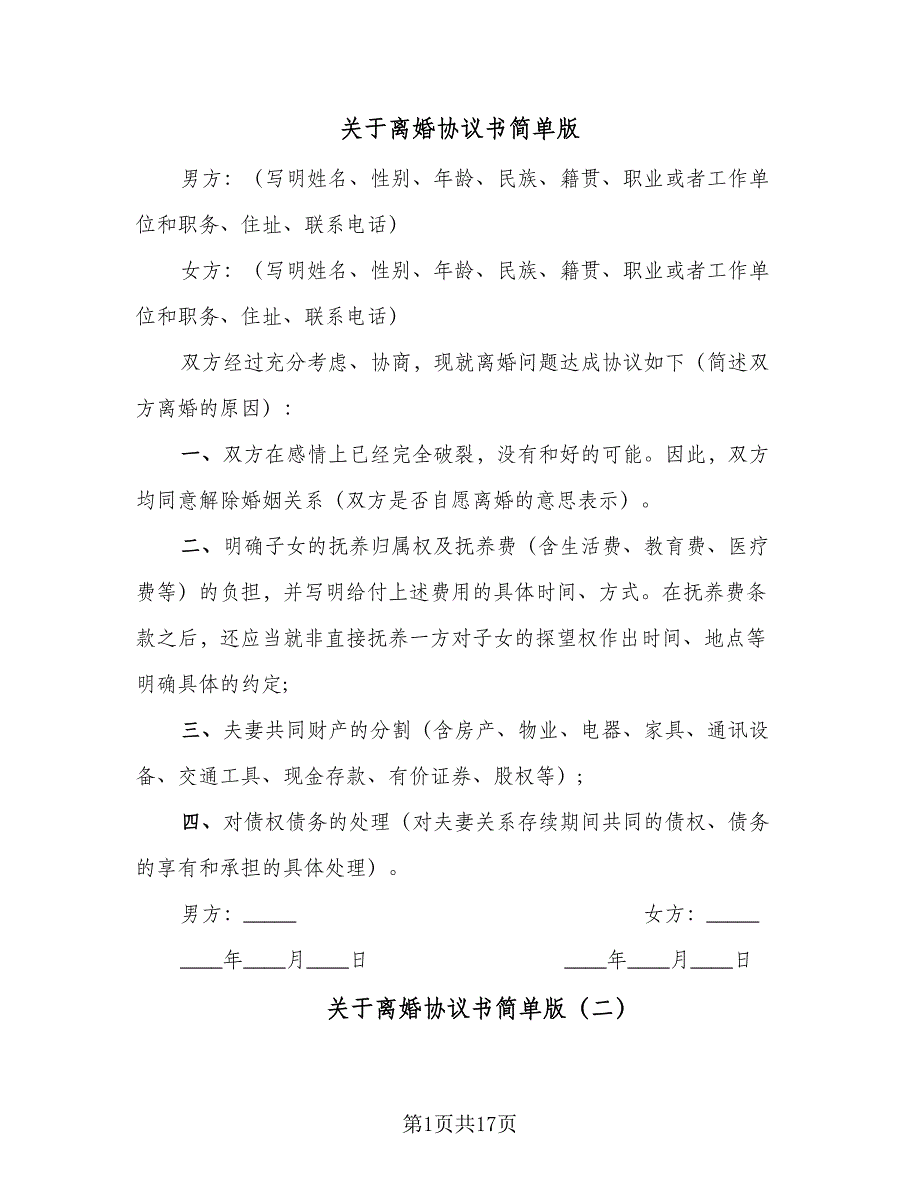 关于离婚协议书简单版
男方：（写明姓名、性别、年龄、民族、籍贯、职业或者工作单
位和职务、住址、联系电话）
女方：（写明姓名、性别、年龄、民族、籍贯、职业或者工作单
位和职务、住址、联系电话）
双方经过充分考虑、协商，现就离婚问题达成协议如下（简述双
方离婚的原因）：
一、双方在感情上已经完全破裂，没有和好的可能。因此，双方
均同意解除婚姻关系（双方是否自愿离婚的意思表示）。
二、明确子女的抚养归属权及抚养费（含生活费、教育费、医疗
费等）的负担，并写明给付上述费用的具体时间、方式。在抚养费条
款之后，还应当就非直接抚养一方对子女的探望权作出时间、地点等
明确具体的约定;
三、夫妻共同财产的分割（含房产、物业、电器、家具、通讯设
备、交通工具、现金存款、有价证券、股权等）;
四、对债权债务的处理（对夫妻关系存续期间共同的债权、债务
的享有和承担的具体处理）。
男方：_____ 女方：_____
____年____月____日 ____年____月____日
关于离婚协议书简单版（二）
第1页共17页